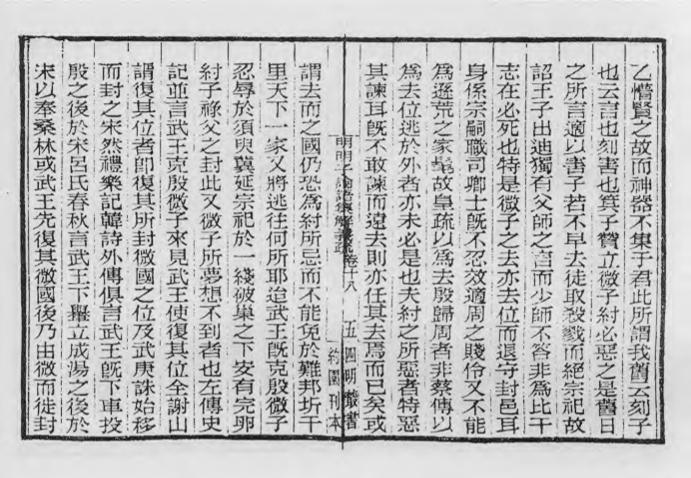 乙憯賢之故而神器不集于君此所謂我舊云刻子
也云言也刻害也箕子贊立微子紂必惡之是舊日
之所言適以害子若不早去徒取殺戮而絕宗祀故
詔王子出迪獨有父師之言而少師不答非為比干
志在必死也特是微子之去亦去位而退守封邑耳
身係宗嗣職司卿士既不忍效適周之賤伶又不能
為遯荒之家耄故皇疏以為去殷歸周者非蔡傳以
為去位逃於外者亦未必是也夫紂之所惡者特惡
其諫耳既不敢諫而遠去則亦任其去焉而已矣或
明明子論語集解義疏卷十八 五 四明叢書
約園刊本
謂去而之國仍恐為紂所忌而不能免於難邦圻千
里天下一家又將逃往何所耶迨武王既克殷微子
忍辱於須臾冀延宗祀於一綫破巢之下安有完卵
紂子祿父之封此又微子所夢想不到者也左傳史
記並言武王克殷微子來見武王使復其位全謝山
謂復其位者即復其所封微國之位及武庚誅始移
而封之宋然禮樂記韓詩外傳俱言武王既下車投
殷之後於宋呂氏春秋言武王下轝立成湯之後於
宋以奉桑林或武王先復其微國後乃由微而徙封